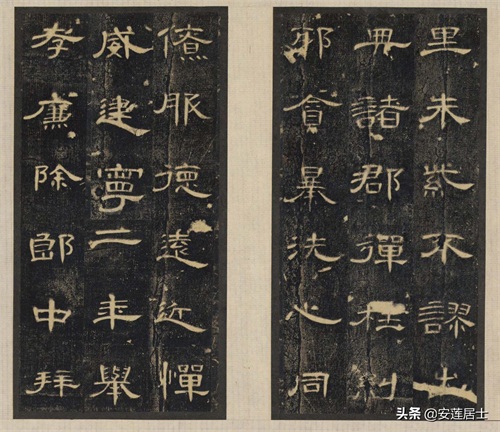 里朱紫不謬出
典諸郡彈枉糾
邪貪暴洗心同
僚服德遠近憚
威建寧二年舉
孝廉除郎中拜
头条 @安莲居士